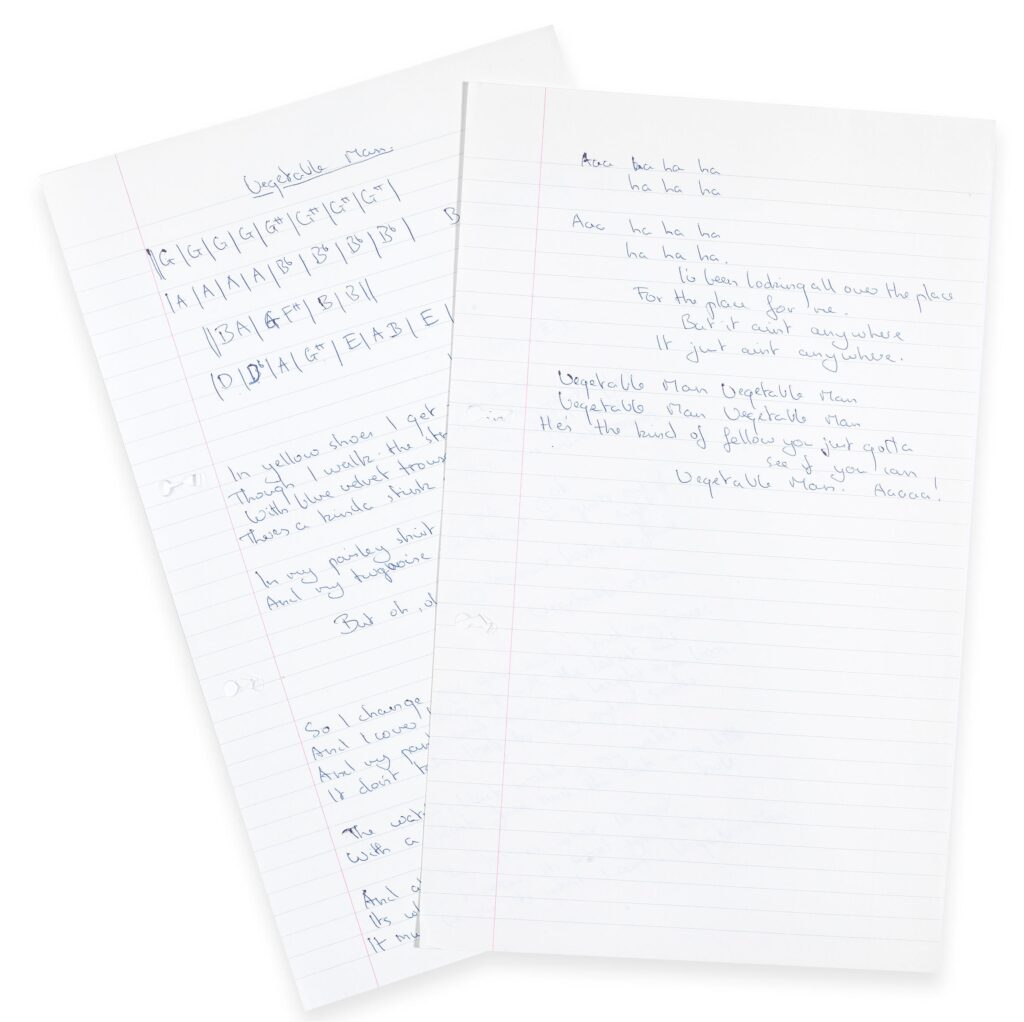 Vegetable Man
||G|G|G|G|G#|G#|G#|G#|
|A|A|A|A|Bb|Bb|Bb|Bb| B
||BA|GF#|B|B||
|D|Db|A|G#|E|AB|E|
In yellow shoes I get
Though I walk the
With blue velvet
Theres a kinda stink
In my paisley shirt
And my turquoise
But oh, oh
So I change
And I cover
And my
It dont
The
With a
And
Its
It
Aaa ha ha ha
ha ha ha
Aaa ha ha ha
ha ha ha.
I'd been looking all over the place
For the place for me.
But it aint anywhere
It just aint anywhere.
Vegetable Man Vegetable Man
Vegetable Man Vegetable Man
He's the kind of fellow you just gotta
see if you can!
Vegetable Man. Aaaaa!